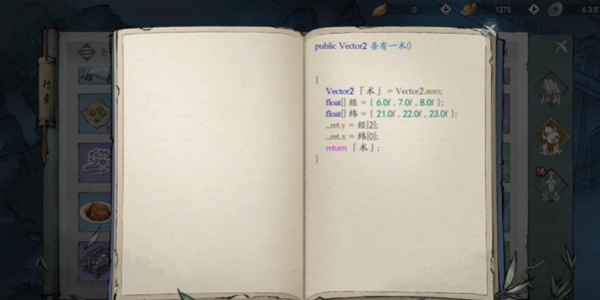 0
1375
6.33
全
行囊
public Vector2 吾有一术()
{
Vector2 「术」 = Vector2.zero;
float[] 经 = { 6.0f , 7.0f , 8.0f };
float[] 纬 = { 21.0f , 22.0f , 23.0f };
_ret.y = 经[2];
_ret.x = 纬[0];
return 「术」;
}